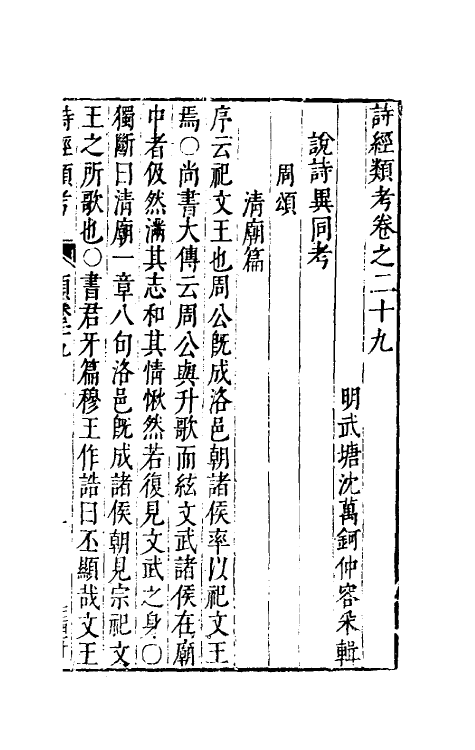 詩經類考卷之二十九
明武塘沈萬鈳仲容采輯
說詩異同考
周頌
清廟篇
序云祀文王也周公旣成洛邑朝諸侯率以祀文王
焉○尚書大傳云周公與升歌而絃文武諸侯在廟
中者伋然滿其志和其情愀然若復見文武之身○
獨斷曰清廟一章八句洛邑旣成諸侯朝見宗祀文
王之所歌也○書君牙篇穆王作誥曰丕顯哉文王
詩經類考